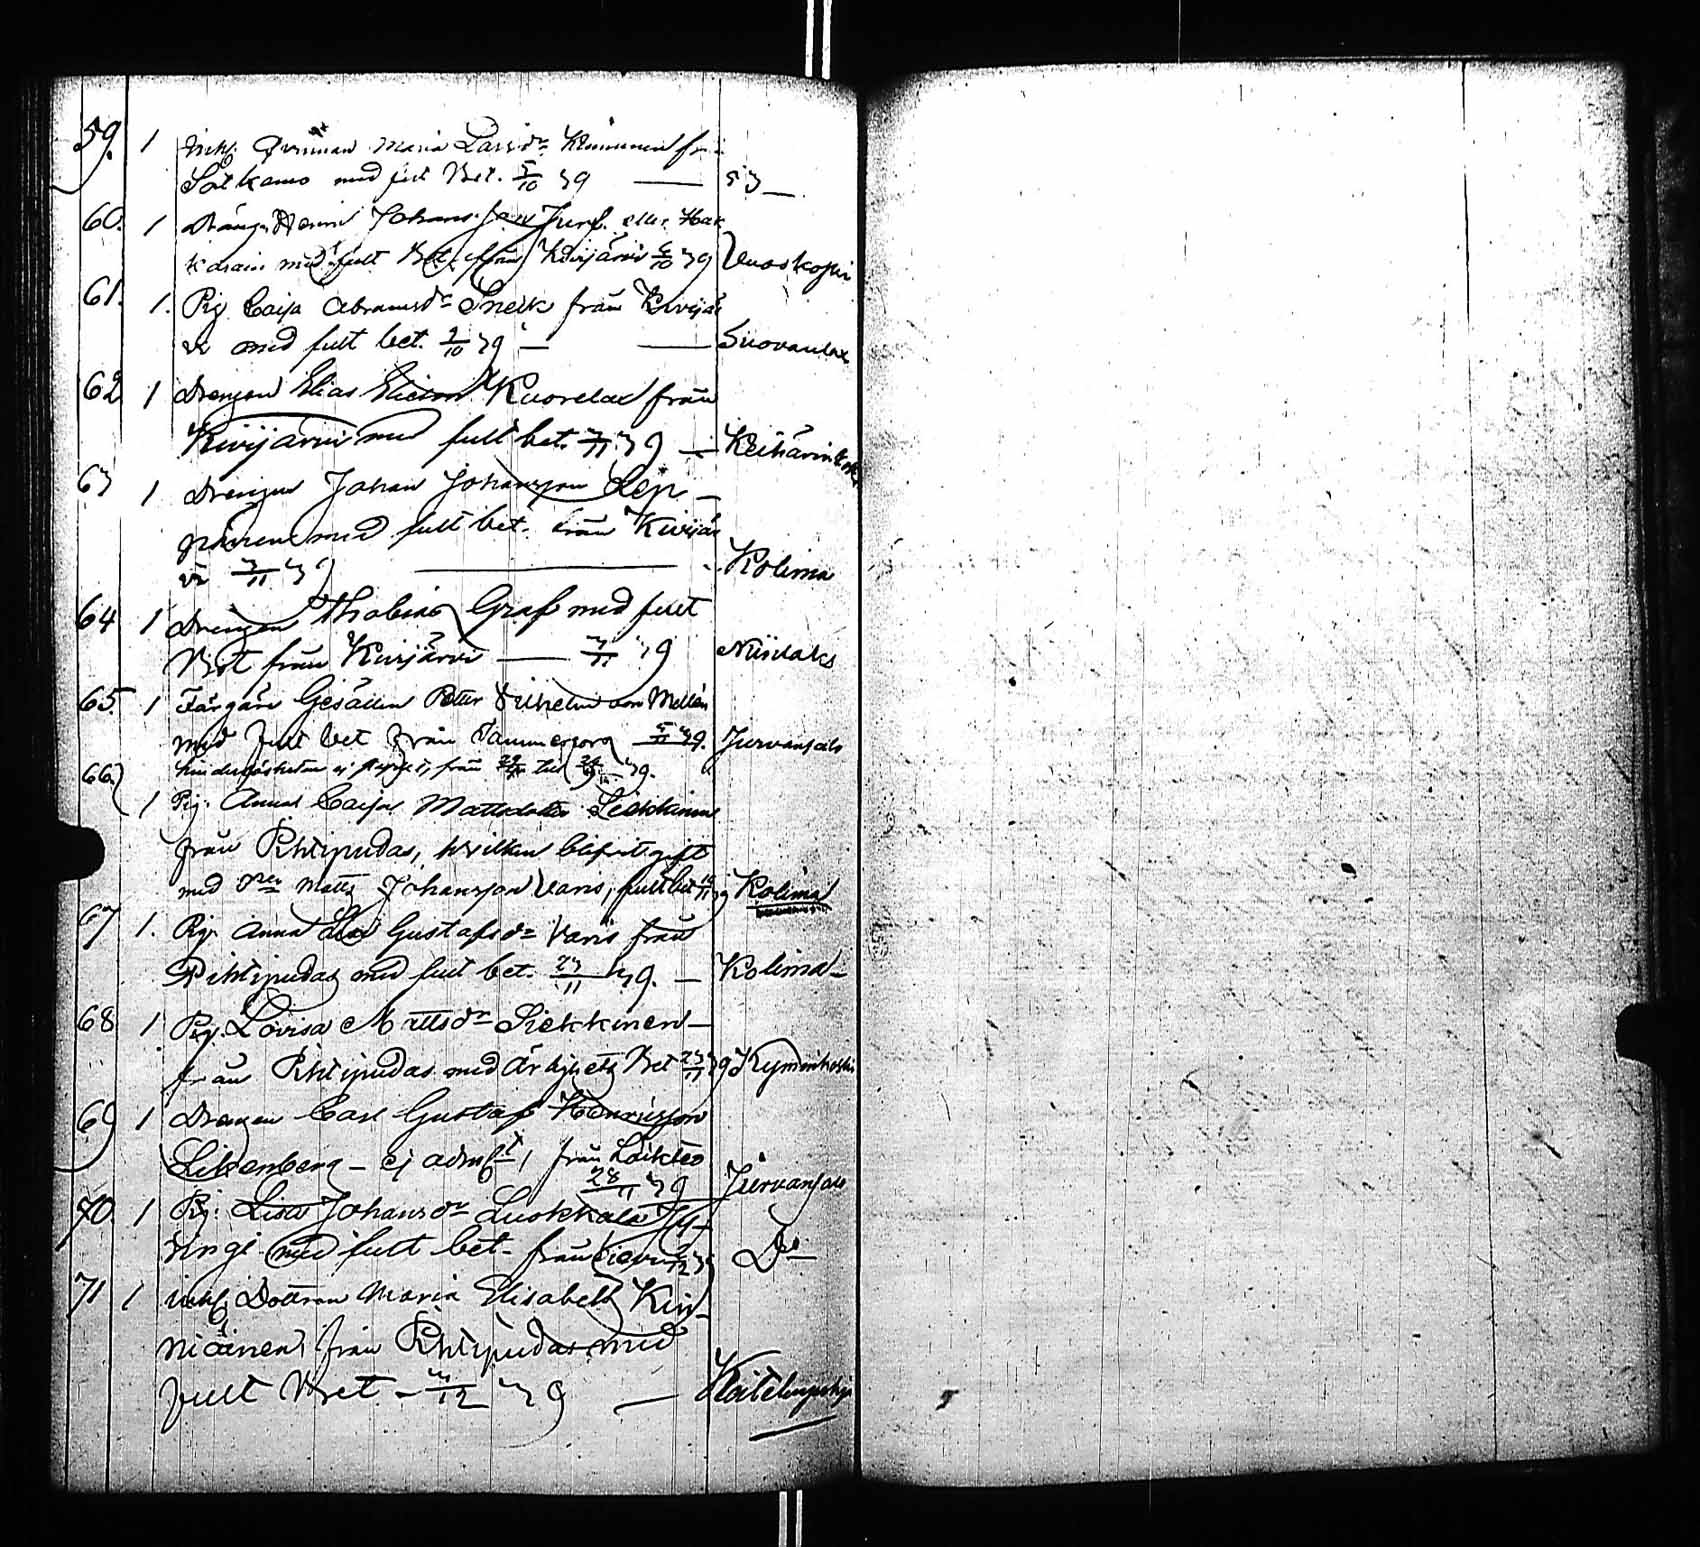 59. 1 Inhs. Qvinnan Maria Larsdr Kinnunen från
Sotkamo med fult Bet. 5/10 79 — 53 —
60. 1 Dräng Henric Johansson Jurf. eller Hak
karain med fult Bet. från Kivijärvi 6/10 79 Vuoskoski
61. 1. Pig. Caisa Abramsdr Snelk från Kivijär
vi med fult bet. 9/10 79 — — Suovanlax
62 1 Drengen Elias Eliasson Kuorelax från
Kivijärvi med fult bet. 7/11 79 — Keihärinkoski
63 1 Drengen Johan Johansson Lep-
pänen med fult bet. från Kivijär
vi 7/11 79 — Kolima
64 1 Drengen Thobias Graf med fult
Bet från Kivijärvi — 7/11 79 Niinilaks
65. 1 Färgare Gesällen Petter Vilhelm von Mellén
med fult bet från Tammerfors 5/11 79. Jurvansalo
hinderslösheten ej styrkt, från
66. 1 Pig. Anna Caisa Mattsdotter Siekkinen
från Pihtipudas, hvilken blifvit gift
med Matts Johansson Varis, fult bet 79 Kolima
67 1. Pig. Anna Lisa Gustafsdr Varis från
Pihtipudas med fult bet. 23/11 79. — Kolima —
68 1 Pig. Lovisa Mattsdr Siekkinen —
från Pihtipudas med ärlighets Bet 23/11 79 Kymönkoski
69 1 Drengen Carl Gustaf Henricsson
Lilienberg — ej admt, från Laihela
28/11 79 Jurvansalo
70. 1 Pig. Lisa Johansdr Luokkala
med fult bet. från Do
71 1 Inhs. Dottren Maria Elisabeth Kin-
niäinen, från Pihtipudas med
fult Bet — 7/12 79 — Keitelepohja